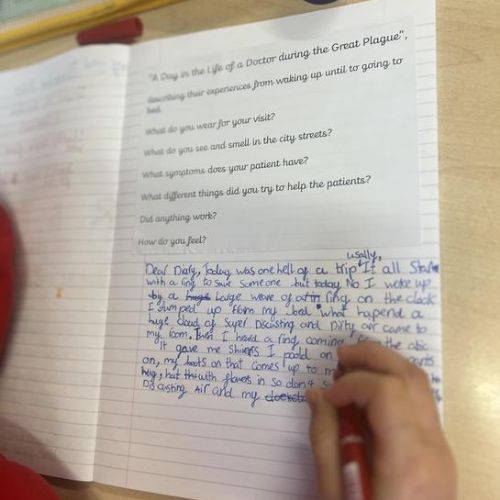 "A Day in the Life of a Doctor during the Great Plague",
describing their experiences from waking up until to going to
bed.
What do you wear for your visit?
What do you see and smell in the city streets?
What symptoms does your patient have?
What different things did you try to help the patients?
Did anything work?
How do you feel?
usally,
Dear Diary, Today was one hell of a trip It all
with a ring to save someone but today No I woke up
by a large wave of ring on the clock
I Jumped up from my bed "what hapend a
huge cloud of super Discisting and Dirty air came to
my room, then I heard a ring coming from the
it gave me shivers I poold on
on, my boots on that comes up to
hat with flowers in so don't
Discusting Air and my